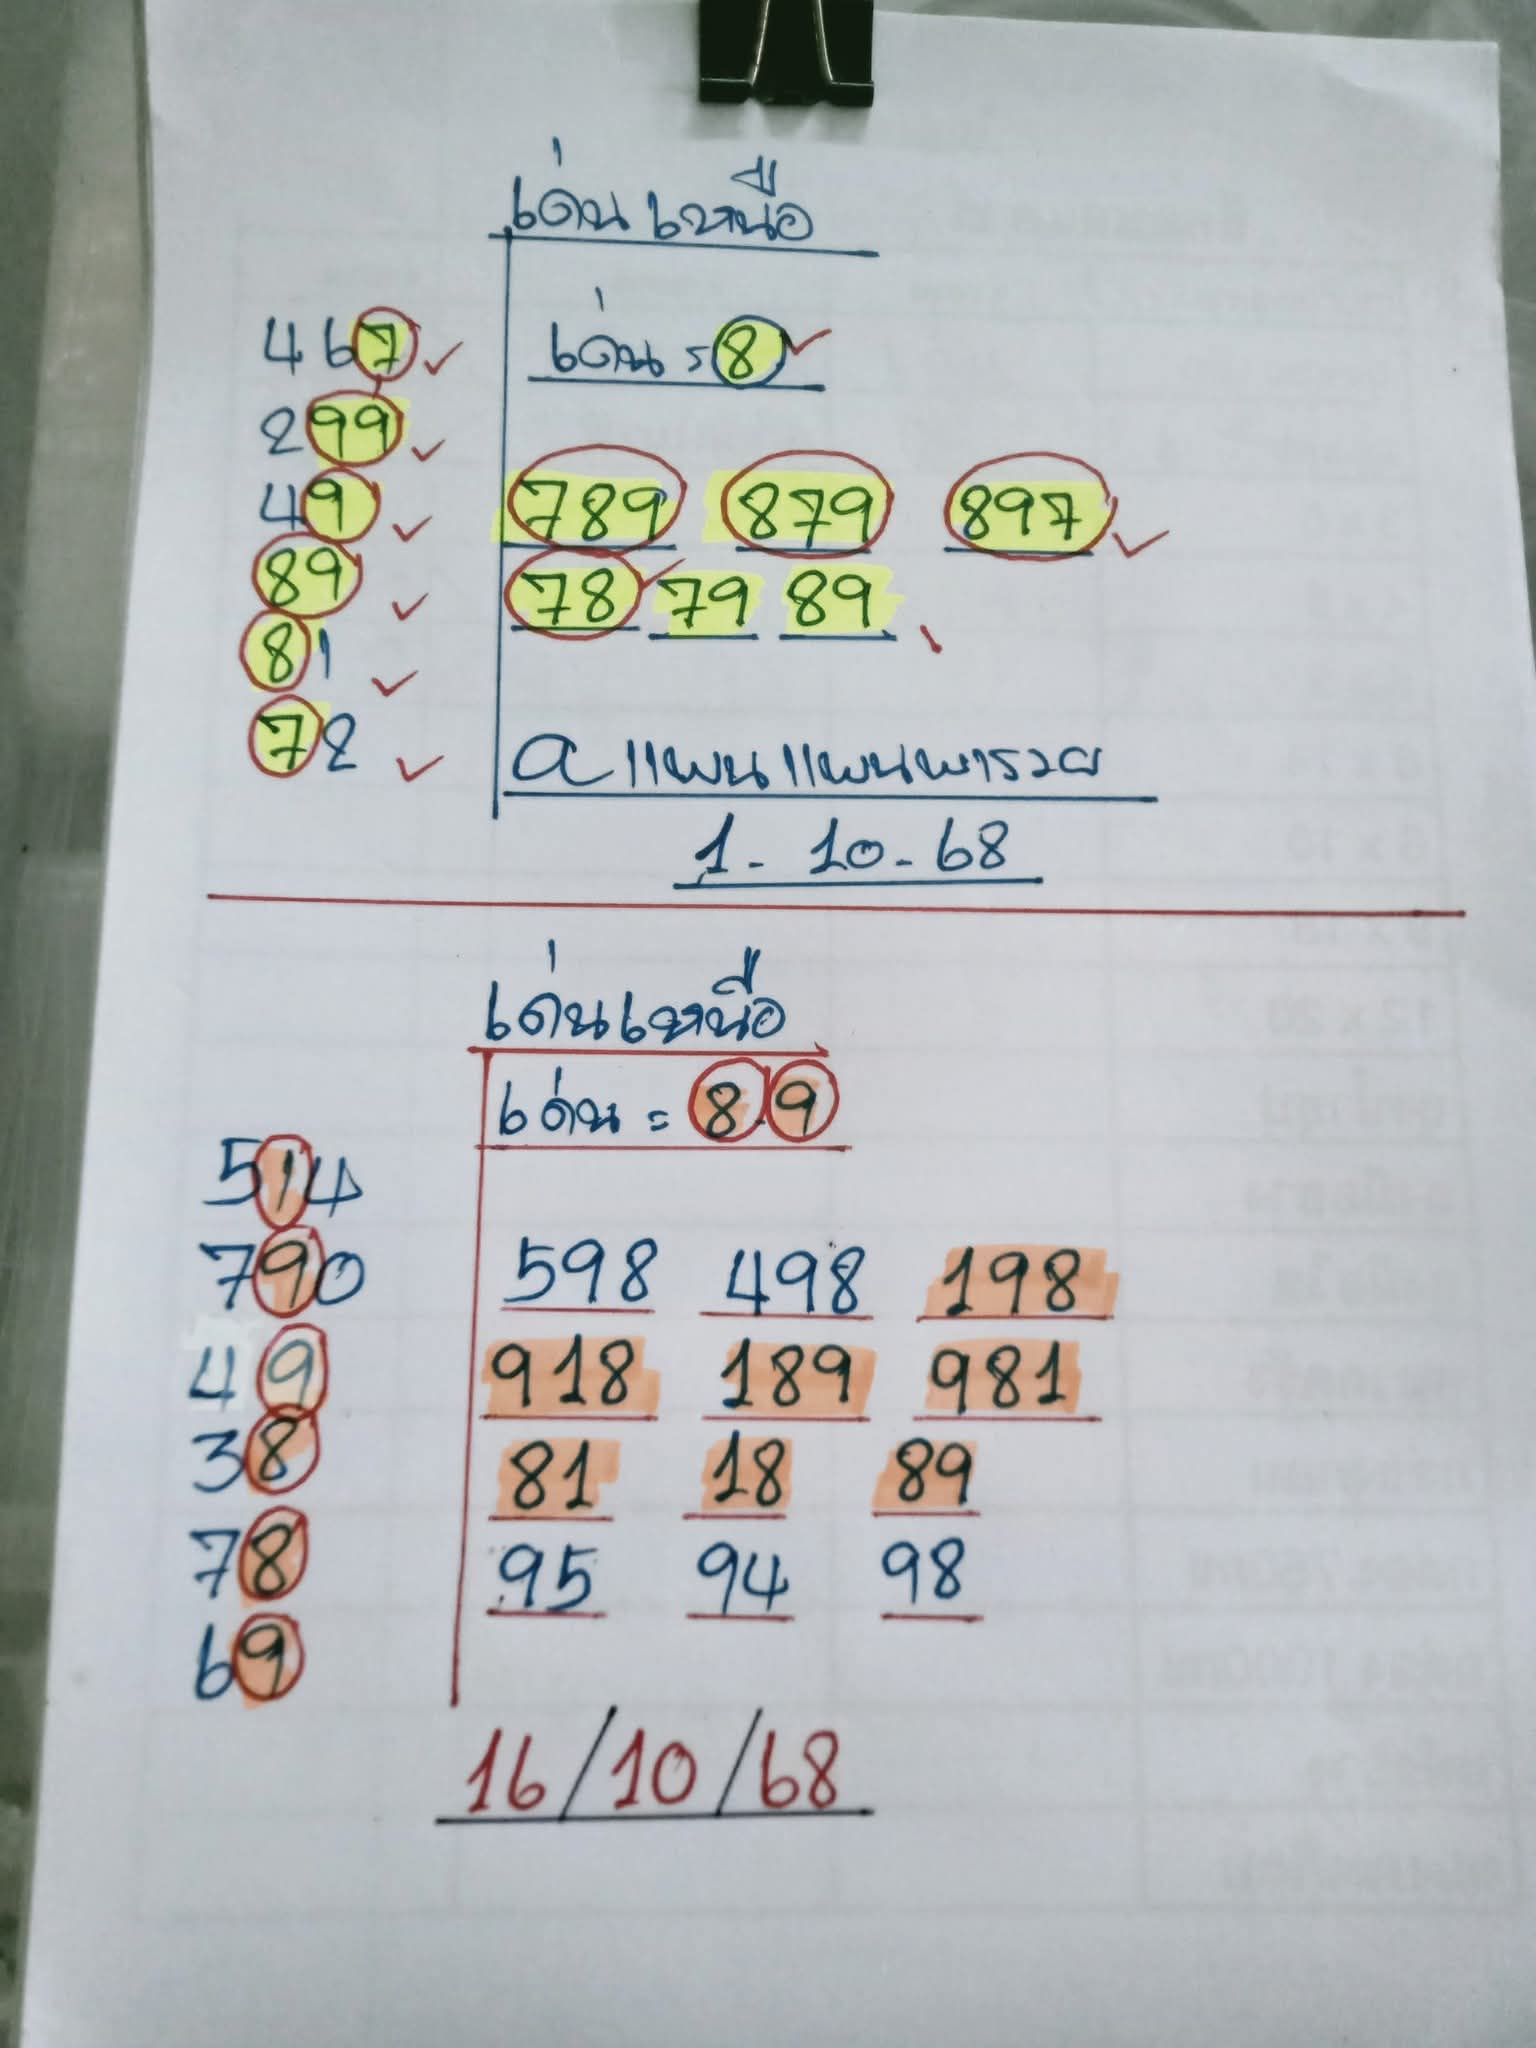 เด่นเหนือ
เด่น = 8
467
299
49
89
81
72
789 879 897
78 79 89
a แพนแพนพารวย
1-10-68
เด่นเหนือ
เด่น = 8.9
514
790
49
38
78
69
598 498 198
918 189 981
81 18 89
95 94 98
16/10/68